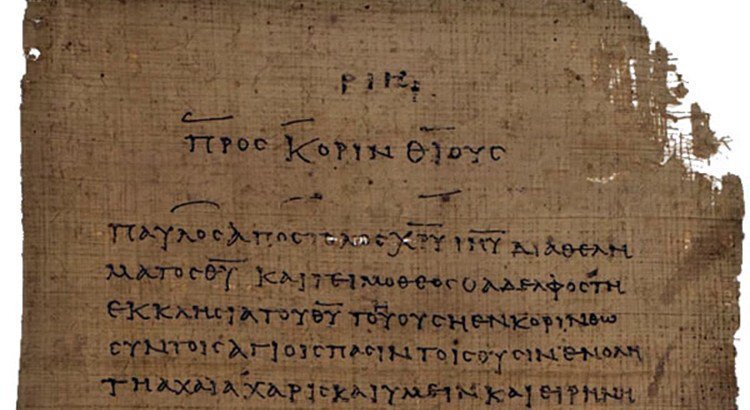 ΡΙΗ
ΠΡΟϹ ΚΟΡΙΝΘΙΟΥϹ
ΠΑΥΛΟϹΑΠΟϹΤΟΛΟϹ Χ̅Ρ̅Υ̅ Ι̅Η̅Υ̅ ΔΙΑΘΕΛΗ
ΜΑΤΟϹ Θ̅Υ̅ ΚΑΙΤΕΙΜΟΘΕΟϹΟΑΔΕΛΦΟϹΤΗ
ΕΚΚΛΗϹΙΑΤΟΥ Θ̅Υ̅ ΤΟΥΟΥϹΗΕΝΚΟΡΙΝΘΩ
ϹΥΝΤΟΙϹΑΓΙΟΙϹΠΑϹΙΝΤΟΙϹΟΥϹΙΝΕΝΟΛΗ
ΤΗΑΧΑΙΑΧΑΡΙϹΚΑΙΥΜΕΙΝΚΑΙΕΙΡΗΝΗ